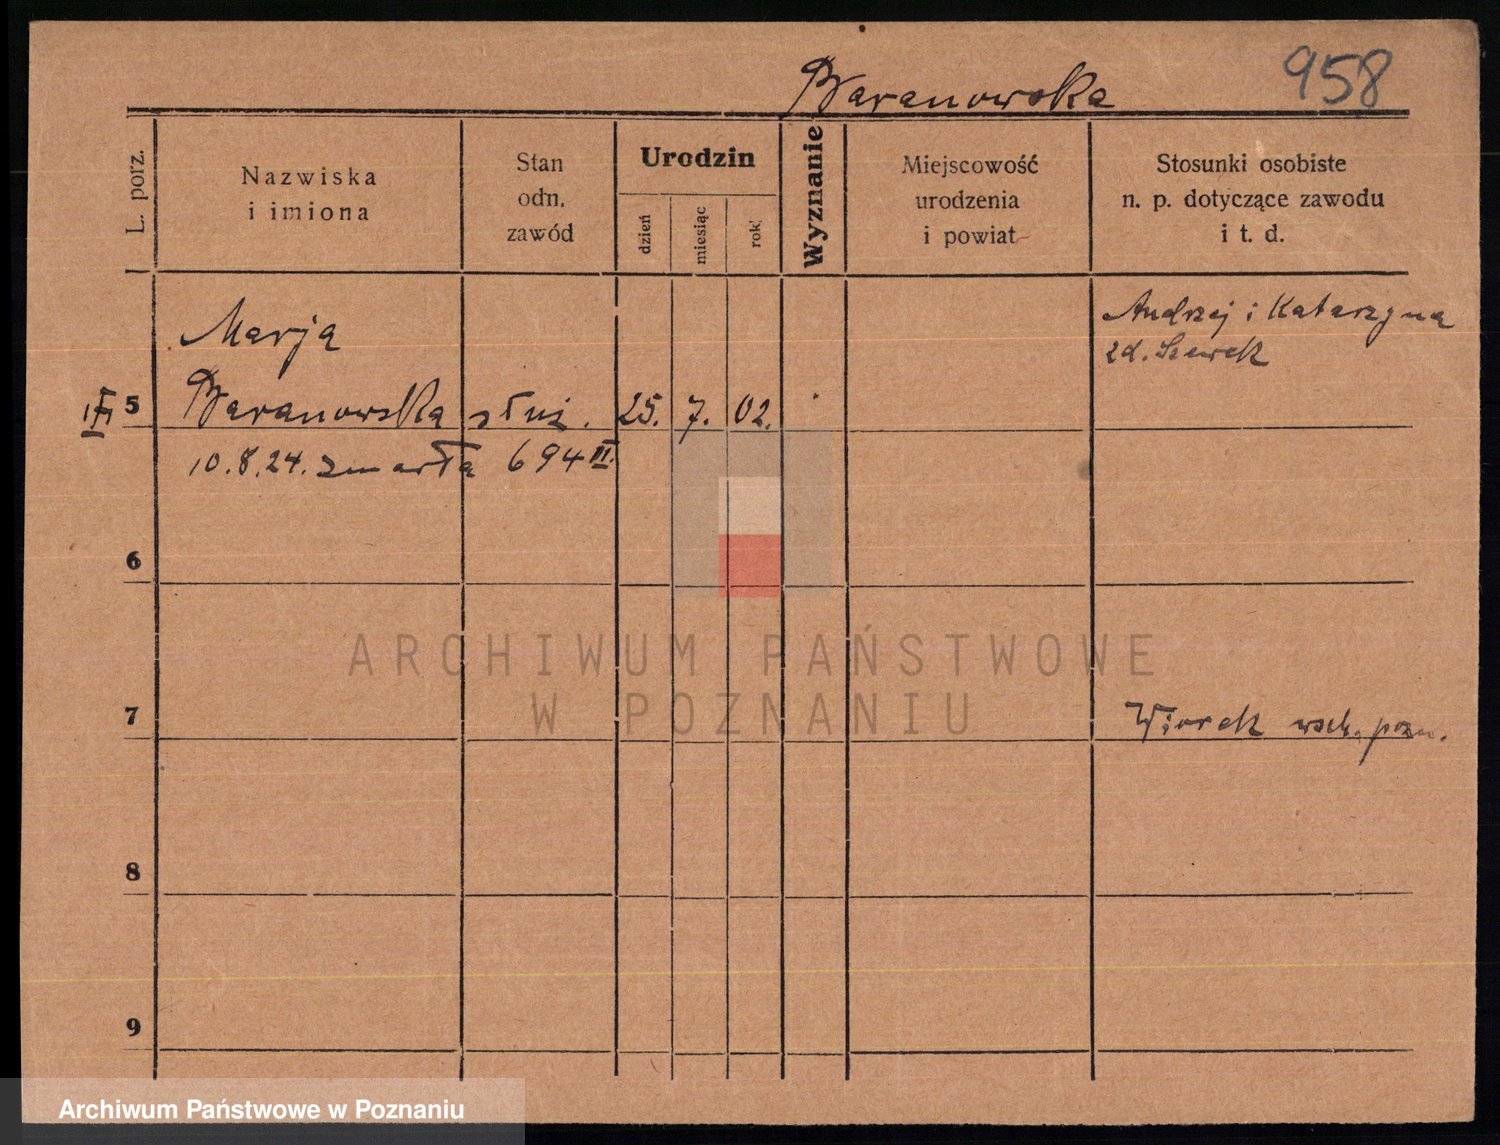 958
Baranowska
L. porz.
Nazwiska
i imiona
Stan
odn.
zawód
Urodzin
dzień
miesiąc
rok
Wyznanie
Miejscowość
urodzenia
i powiat
Stosunki osobiste
n. p. dotyczące zawodu
i t. d.
Andrzej i Katarzyna
zd.
Marja
5 Baranowska służ. 25. 7. 02.
10.8.24. zmarła 694 III.
6
7 Wiorek wsch. pozn.
8
9
ARCHIWUM PAŃSTWOWE
W POZNANIU
Archiwum Państwowe w Poznaniu